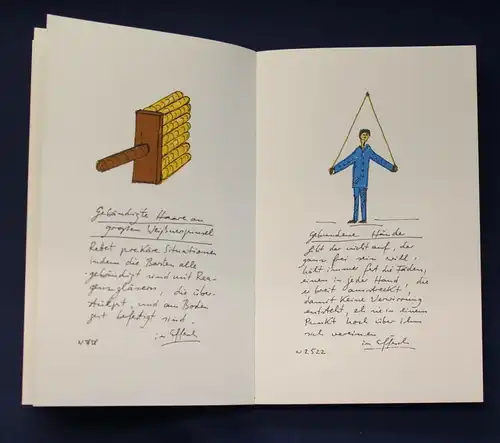 Gebändigte Haare an
großem Weißnerpinsel
Rettet prekäre Situationen
indem die Borsten alle
gebändigt sind mit Rea-
genzgläsern, die über-
stülpt, und am Boden
gut befestigt sind.
Gebundene Hände
übt der nicht auf, der
ganz frei sein will,
hält immer fest die Fäden,
einen in jeder Hand, die
er breit ausstreckt,
damit keine Verwirrung
entsteht, eh sie in einem
Punkt hoch über ihm
sich vereinen
w 2522